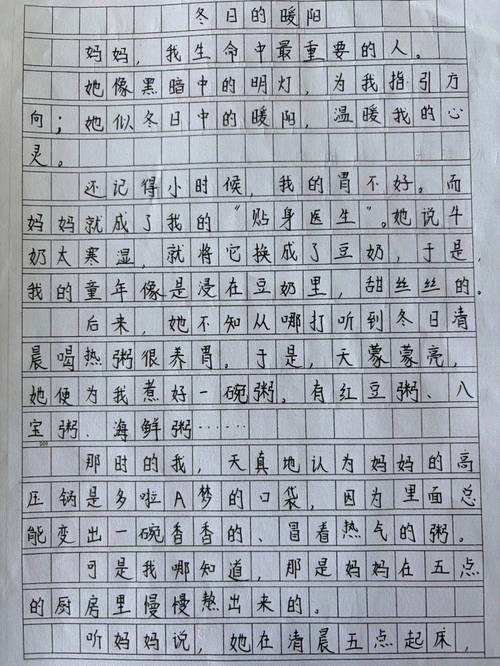 冬日的暖阳
妈妈，我生命中最重要的人。
她像黑暗中的明灯，为我指引方
向；她似冬日中的暖阳，温暖我的心
灵。
还记得小时候，我的胃不好。而
妈妈就成了我的“贴身医生”。她说牛
奶太寒湿，就将它换成了豆奶，于是，
我的童年像是浸在豆奶里，甜丝丝的。
后来，她不知从哪打听到冬日清
晨喝热粥很养胃。于是，天蒙蒙亮，
她便为我煮好一碗粥。有红豆粥、八
宝粥、海鲜粥……
那时的我，天真地认为妈妈的高
压锅是多啦A梦的口袋，因为里面总
能变出一碗香香的、冒着热气的粥。
可是我哪知道，那是妈妈在五点
的厨房里慢慢熬出来的。
听妈妈说，她在清晨五点起床，